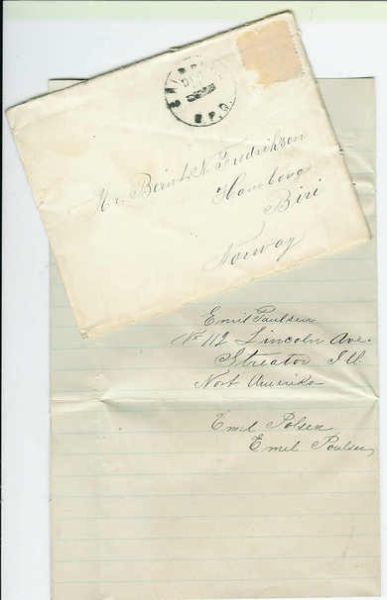 R.P.O.
Mr. Bernt N. Fredriksen
Honberg
Biri
Norway
Emil Paulsen
No 112 Lincoln Ave.
Streator Ill.
Nort Amerika
Emil Polsen
Emil Poulsen